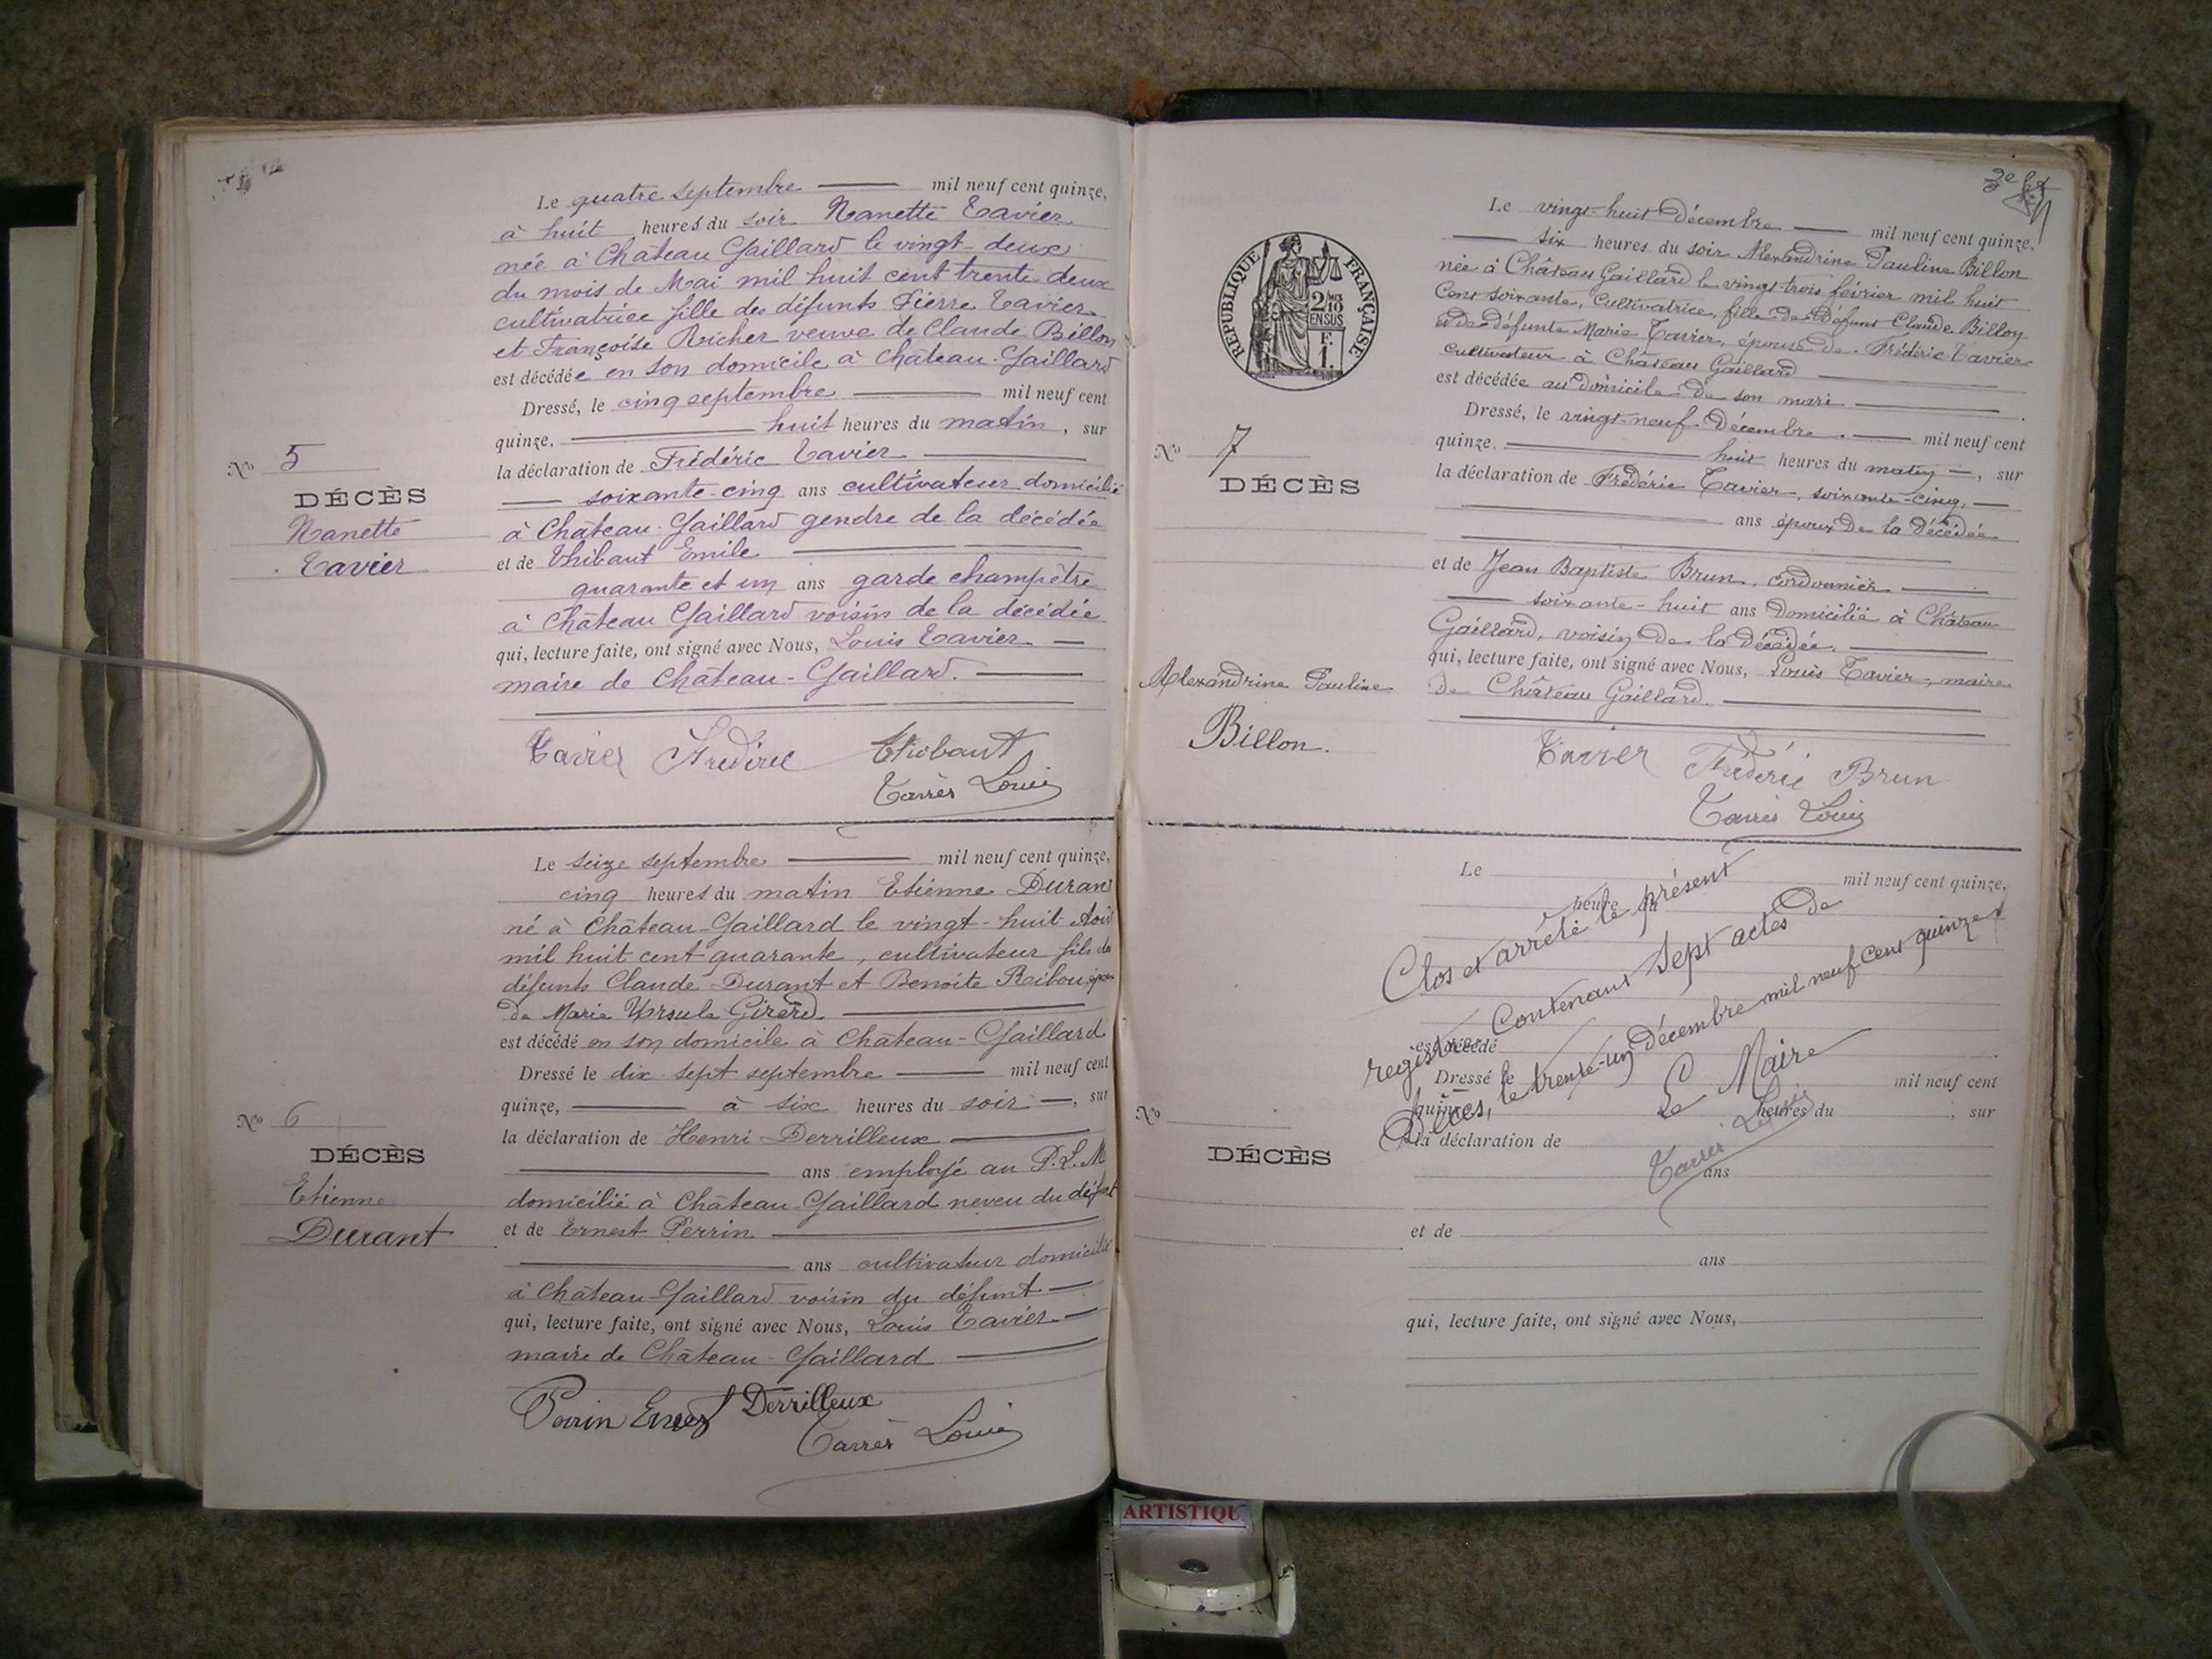 Le quatre septembre mil neuf cent quinze,
à huit heures du soir Nanette Tavier
née à Château Gaillard le vingt-deux
du mois de Mai mil huit cent trente deux
cultivatrice fille des défunts Pierre Tavier
et Françoise Richer veuve de Claude Billon
est décédée en son domicile à Château-Gaillard
Dressé, le cinq septembre mil neuf cent
quinze. huit heures du matin, sur
la déclaration de Frédéric Tavier
soixante-cinq ans cultivateur domicilié
à Château-Gaillard gendre de la décédée
et de Thibaut Emile
quarante et un ans garde champêtre
à Château Gaillard voisin de la décédée
qui, lecture faite, ont signé avec Nous, Louis Tavier
maire de Château-Gaillard.
Nº 5
DÉCÈS
Nanette
Tavier
Tavier Thibaut
Louis
Le seize septembre mil neuf cent quinze,
cinq heures du matin Etienne Durant
né à Château-Gaillard le vingt-huit Août
mil huit cent quarante, cultivateur fils de
défunts Claude Durant et Benoite Reibou époux
de Marie Ursule Girerd
est décédé en son domicile à Château-Gaillard
Dressé le dix sept septembre mil neuf cent
quinze, à six heures du soir, sur
la déclaration de Henri Derrilleux
ans employé au P.L.M
domicilié à Château-Gaillard neveu du défunt
et de Ernest Perrin
ans cultivateur domicilié
à Château-Gaillard voisin du défunt
qui, lecture faite, ont signé avec Nous, Louis Tavier
maire de Château-Gaillard
Nº 6
DÉCÈS
Etienne
Durant
Perrin Ernest Derrilleux
Louis
Le vingt-huit Décembre mil neuf cent quinze,
six heures du soir Alexandrine Pauline Billon
née à Château Gaillard le vingt-trois février mil huit
cent soixante, Cultivatrice, fille de défunt Claude Billon
et de défunte Marie Tavier, épouse de Frédéric Tavier
cultivateur à Château Gaillard
est décédée au domicile de son mari
Dressé, le vingt-neuf Décembre mil neuf cent
quinze. huit heures du matin, sur
la déclaration de Frédéric Tavier, soixante-cinq,
ans époux de la décédée
et de Jean Baptiste Brun, cordonnier
soixante-huit ans domicilié à Château
Gaillard, voisin de la décédée.
qui, lecture faite, ont signé avec Nous, Louis Tavier, maire
de Château Gaillard.
RÉPUBLIQUE FRANÇAISE
2/10
EN SUS
F.
1.
Nº 7
DÉCÈS
Alexandrine Pauline
Billon.
Tavier Frédéric Brun
Louis
Le mil neuf cent quinze,
heure du
est décédé
Dressé le mil neuf cent
quinze, heures du , sur
la déclaration de
ans
et de
ans
qui, lecture faite, ont signé avec Nous,
Nº
DÉCÈS
Clos et arrêté le présent
registre Contenant Sept actes de
Décès, le trente-un Décembre mil neuf cent quinze
Le Maire
Louis
ARTISTIQU